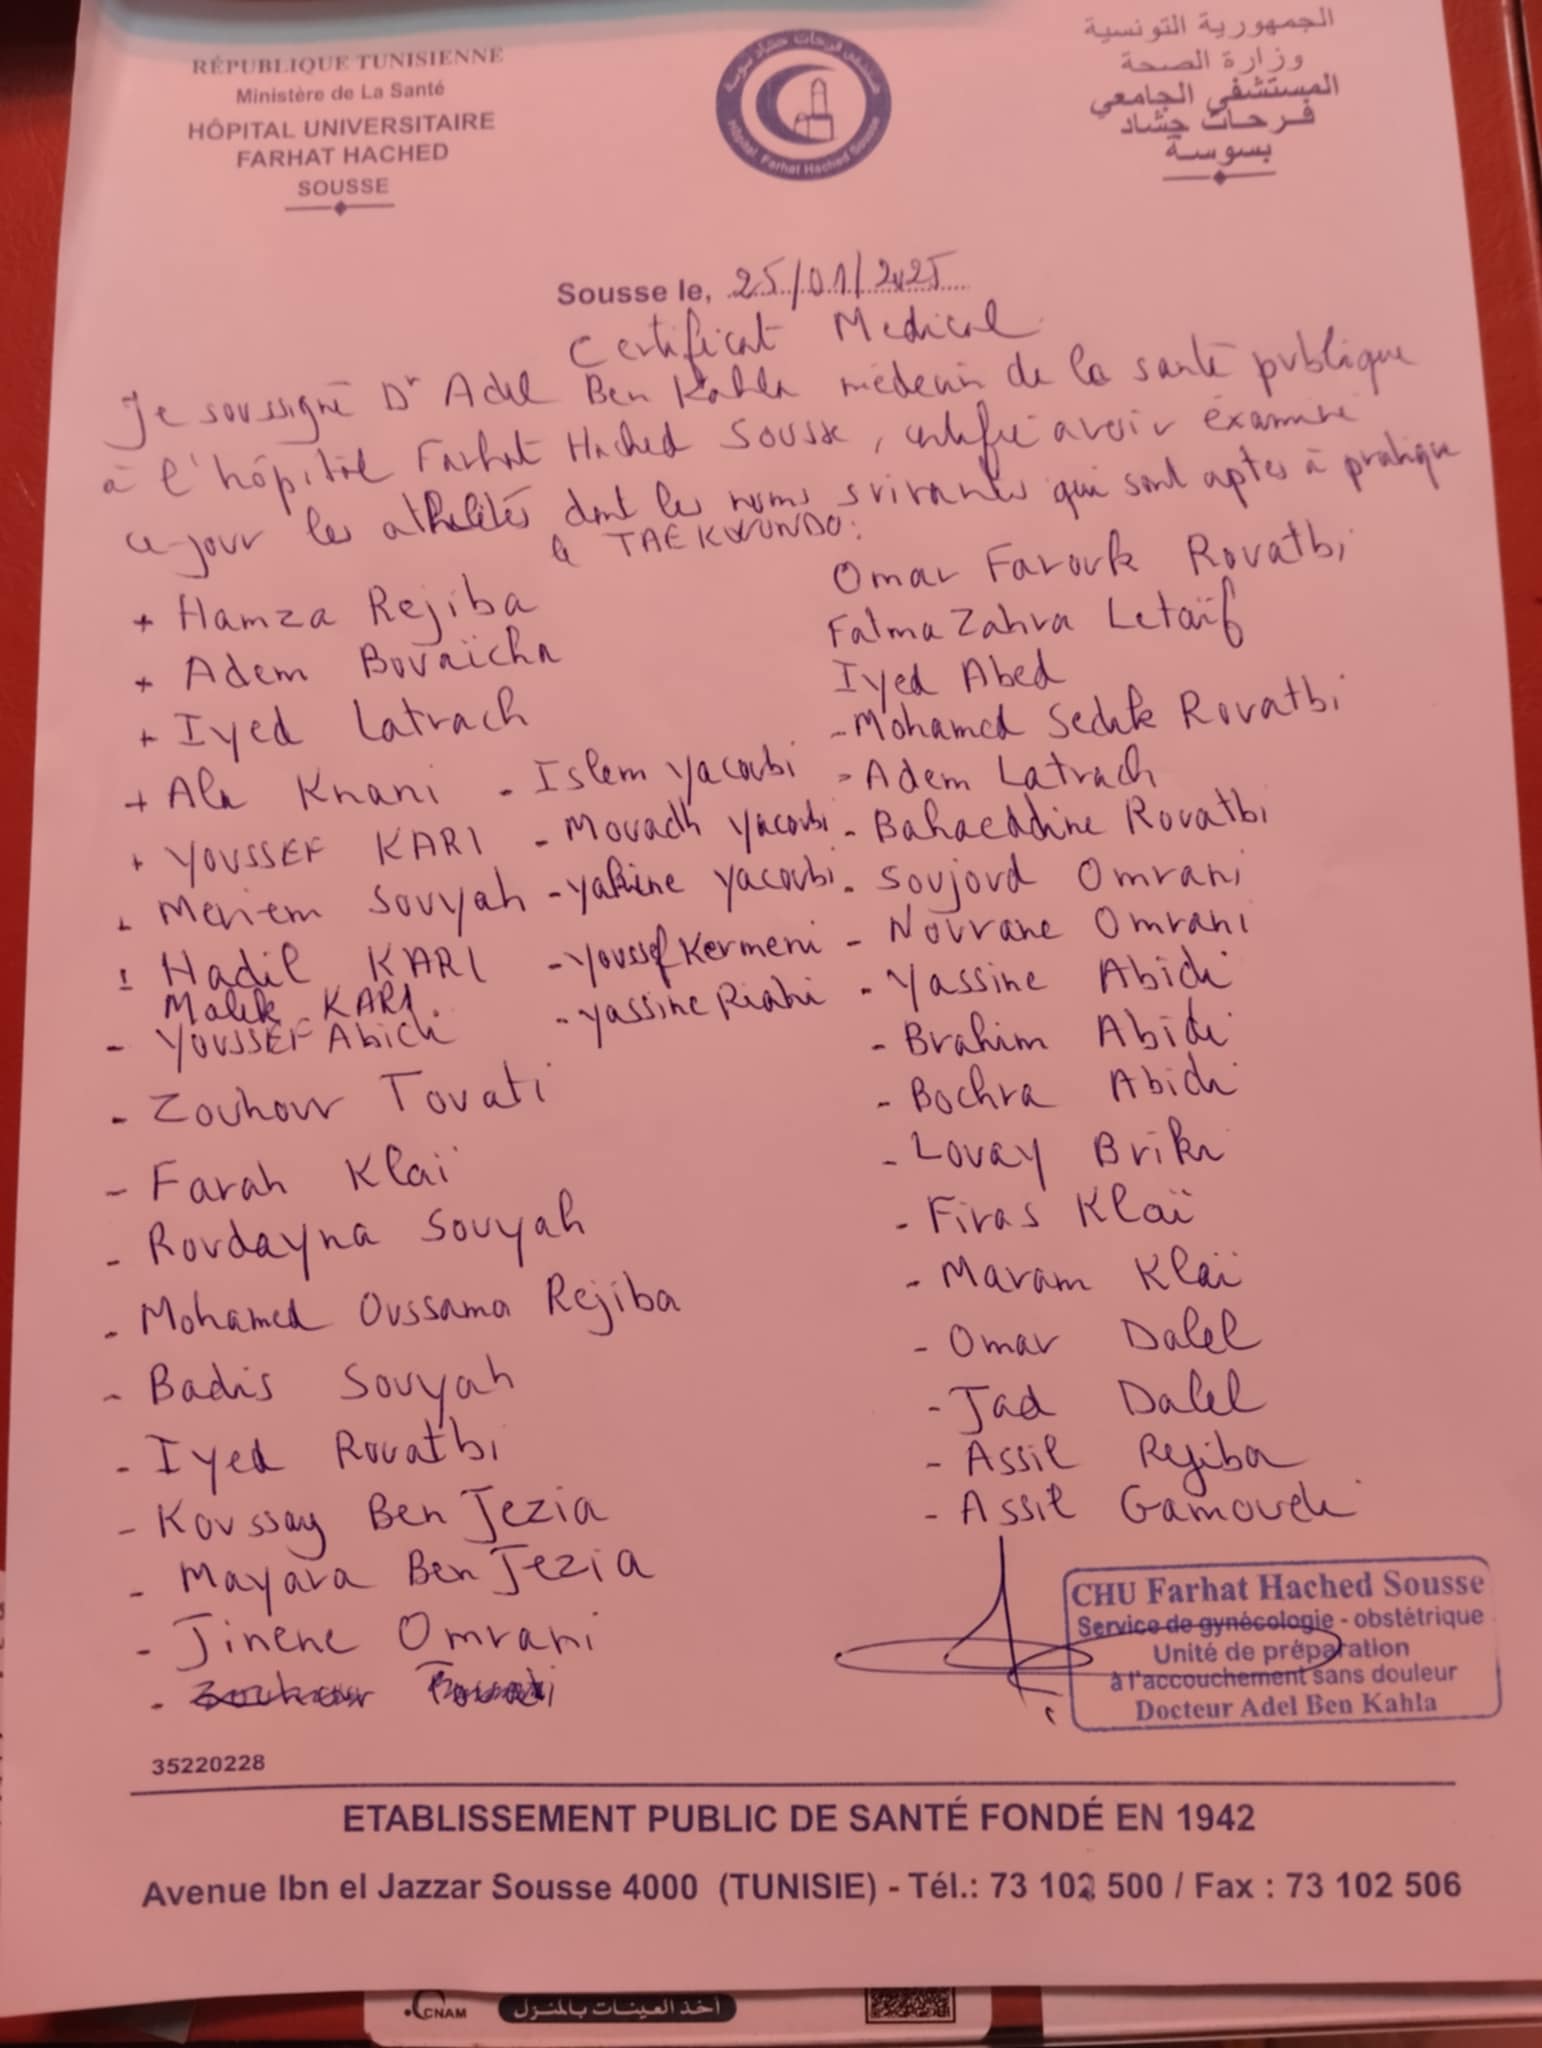 RÉPUBLIQUE TUNISIENNE
Ministère de La Santé
HÔPITAL UNIVERSITAIRE
FARHAT HACHED
SOUSSE
Hôpital Farhat Hached Sousse
الجمهورية التونسية
وزارة الصحة
المستشفى الجامعي
فرحات حشاد
بسوسة
Sousse le, 25/01/2025
Certificat Medical
Je soussigné Dr Adel Ben Kahla médecin de la santé publique
à l'hôpital Farhat Hached Sousse, certifie avoir examiné
ce jour les athelités dont les noms suivants qui sont aptes à pratique
le TAEKWUNDO:
+ Hamza Rejiba
+ Adem Bouaïcha
+ Iyed Latrach
+ Ala Knani
+ YOUSSEF KARI
Meriem Souyah
Hadil KARI
Malek KARI
- YOUSSEF Abidi
- Zouhour Touati
- Farah Klaï
- Roudayna Souyah
- Mohamed Oussama Rejiba
- Badis Souyah
- Iyed Rouatbi
- Koussay Ben Jezia
- Mayara Ben Jezia
- Jinene Omrani
- Islem Yacoubi
- Mouadh Yacoubi
- Yakine Yacoubi
- Youssef Kermeni
- Yassine Riahi
Omar Farouk Rouatbi
Fatma Zahra Letaïf
Iyed Abed
- Mohamed Sedik Rouatbi
- Adem Latrach
- Bahaeddine Rouatbi
- Soujoud Omrani
- Nourane Omrani
- Yassine Abidi
- Brahim Abidi
- Bochra Abidi
- Louay Briki
- Firas Klaï
- Maram Klaï
- Omar Dalel
- Jad Dalel
- Assil Rejiba
- Assil Gamoudi
CHU Farhat Hached Sousse
Service de gynécologie - obstétrique
Unité de préparation
à l'accouchement sans douleur
Docteur Adel Ben Kahla
35220228
ETABLISSEMENT PUBLIC DE SANTÉ FONDÉ EN 1942
Avenue Ibn el Jazzar Sousse 4000 (TUNISIE) - Tél.: 73 102 500 / Fax : 73 102 506
CNAM
أخذ العينات بالمنزل